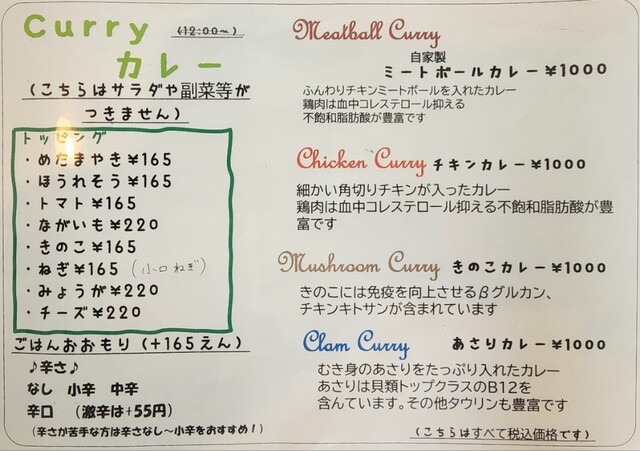 Curry (12:00~)
カレー
(こちらはサラダや副菜等が
つきません)
トッピング
・めだまやき¥165
・ほうれそう¥165
・トマト¥165
・ながいも¥220
・きのこ¥165
・ねぎ¥165 (小口ねぎ)
・みょうが¥220
・チーズ¥220
ごはんおおもり (+165えん)
♪辛さ♪
なし 小辛 中辛
辛口 (激辛は+55円)
(辛さが苦手な方は辛さなし~小辛をおすすめ!)
Meatball Curry
自家製
ミートボールカレー¥1000
ふんわりチキンミートボールを入れたカレー
鶏肉は血中コレステロール抑える
不飽和脂肪酸が豊富です
Chicken Curry チキンカレー¥1000
細かい角切りチキンが入ったカレー
鶏肉は血中コレステロール抑える不飽和脂肪酸が豊
富です
Mushroom Curry きのこカレー¥1000
きのこには免疫を向上させるβグルカン、
チキンキトサンが含まれています
Clam Curry あさりカレー¥1000
むき身のあさりをたっぷり入れたカレー
あさりは貝類トップクラスのB12を
含んでいます。その他タウリンも豊富です
(こちらはすべて税込価格です)